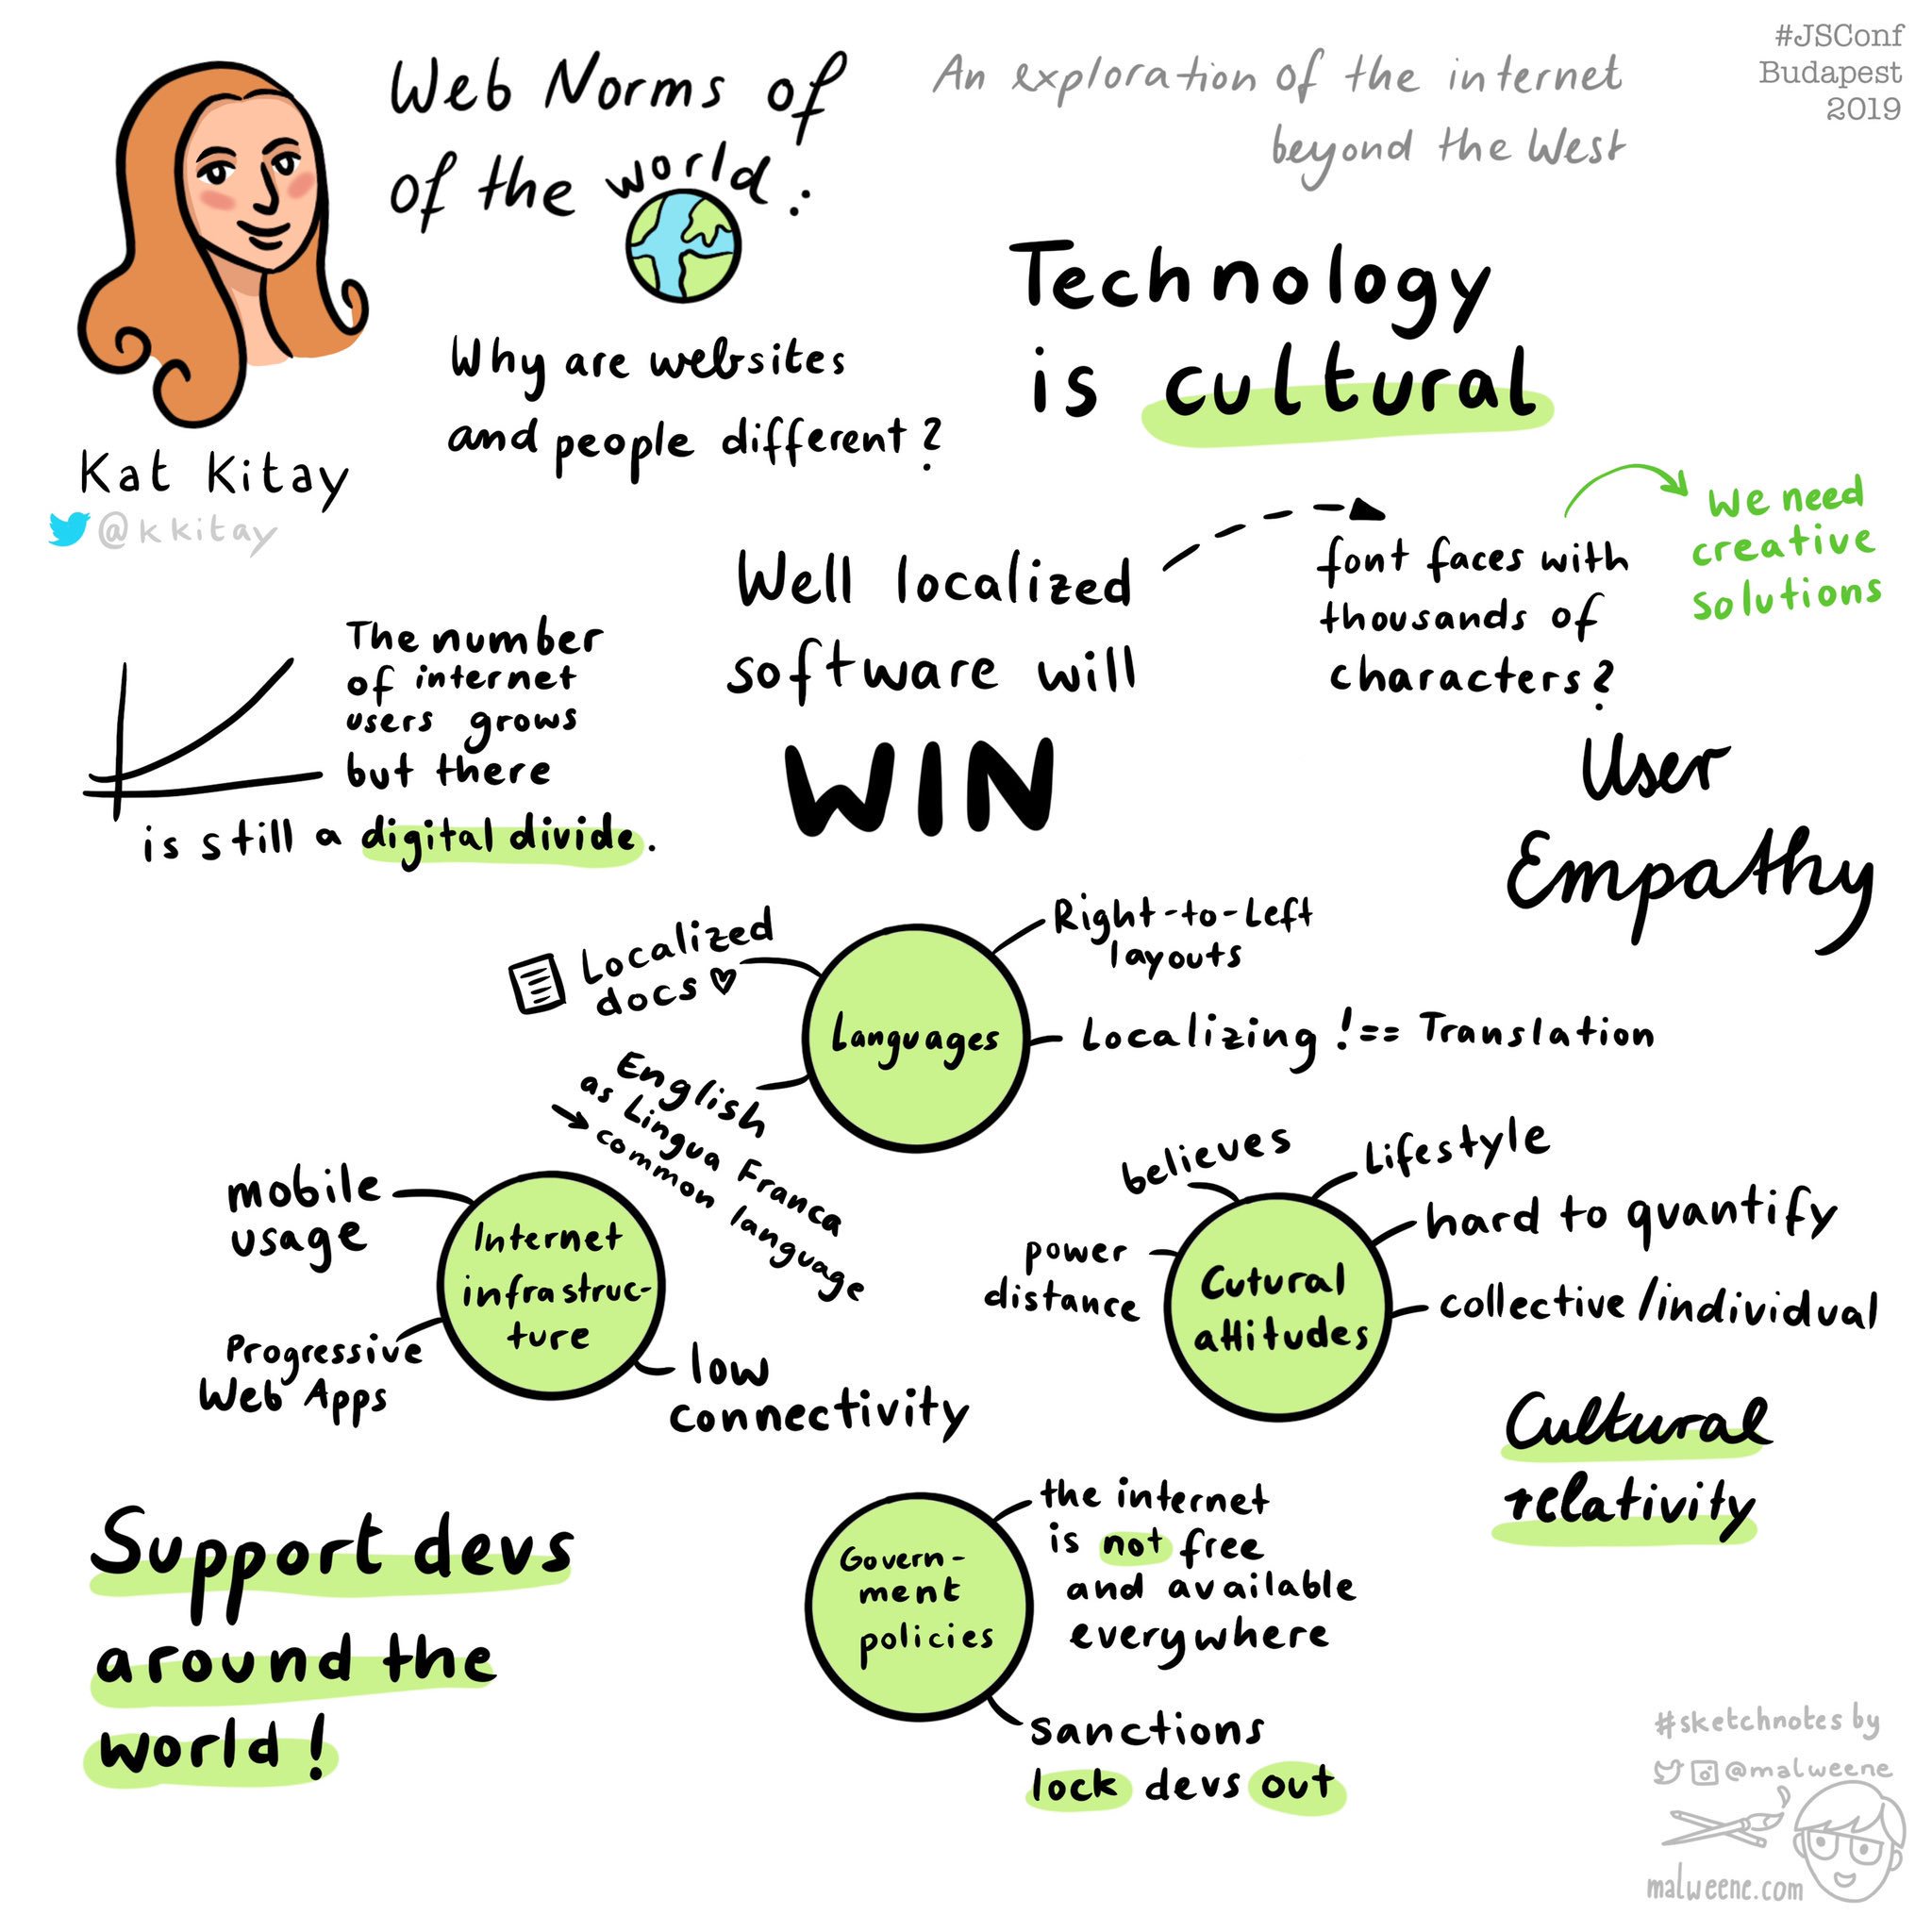 #JSConf
Budapest
2019
Web Norms of
of the world:
An exploration of the internet
beyond the West
Kat Kitay
@kkitay
Why are websites
and people different?
Technology
is cultural
Well localized
software will
WIN
font faces with
thousands of
characters?
We need
creative
solutions
The number
of internet
users grows
but there
is still a digital divide.
User
Empathy
Languages
Localized
docs
Right-to-Left
layouts
Localizing !== Translation
English
as Lingua Franca
common language
Internet
infrastruc-
ture
mobile
usage
Progressive
Web Apps
low
connectivity
Cutural
attitudes
believes
Lifestyle
hard to quantify
power
distance
collective/individual
Cultural
relativity
Support devs
around the
world!
Govern-
ment
policies
the internet
is not free
and available
everywhere
sanctions
lock devs out
#sketchnotes by
@malweene
malweene.com